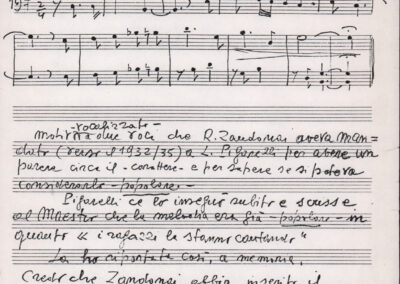 - vocalizzato -
motivo a due voci che R. Zandonai aveva man=
dato (verso il 1932/35) a L. Pigarelli per avere un
parere circa il carattere e per sapere se si poteva
considerarlo - popolare -
Pigarelli ce lo insegnò subito e scrisse
al Maestro che la melodia era già - popolare - in
quanto « i ragazzi la stanno cantando"
La ho riportata così, a memoria.
Credo che Zandonai abbia inserito il